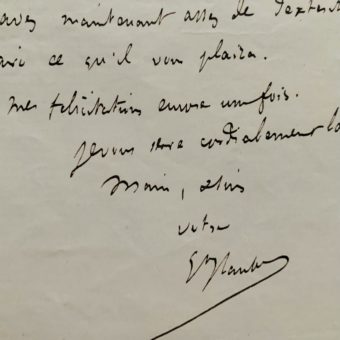 avez maintenant assez de dextérit
faire ce qu'il vous plaira.
Mes félicitations encore une fois.
Je vous serre cordialement la
Main, et suis
votre
Gve Flaube